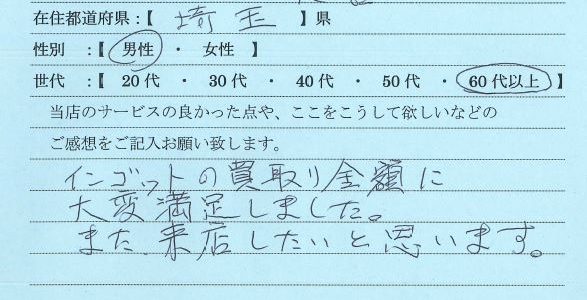 在住都道府県:【 埼玉 】県
性別 :【 男性 ・ 女性 】
世代 :【 20代 ・ 30代 ・ 40代 ・ 50代 ・ 60代以上 】
当店のサービスの良かった点や、ここをこうして欲しいなどの
ご感想をご記入お願い致します。
インゴットの買取り金額に
大変満足しました。
また、来店したいと思います。